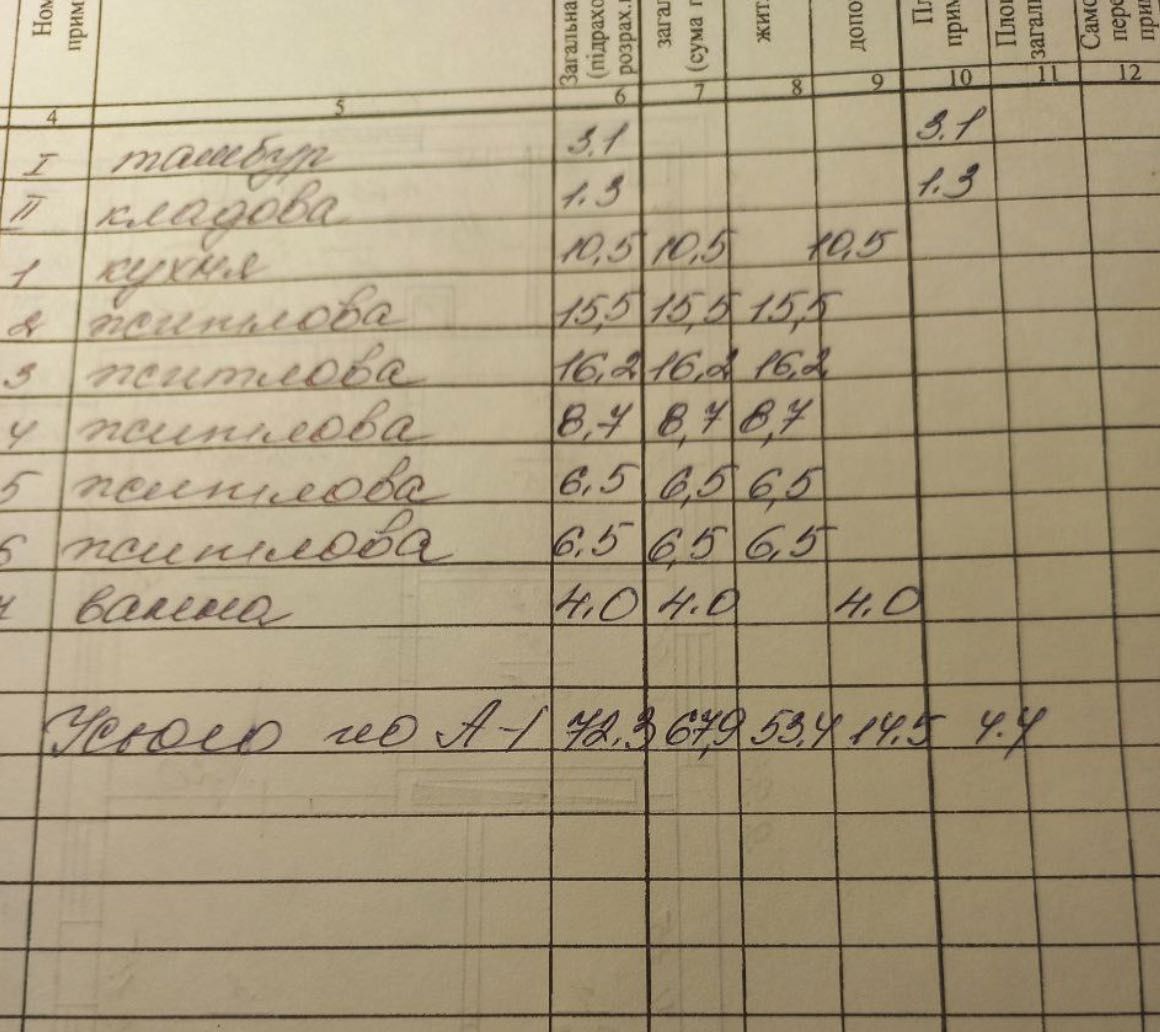 Ном
прим
Загальна
(підрахо
розрах.
загал
(сума п
жит
допо
Пл
прим
Пло
загаль
Само
пере
прим
4 5 6 7 8 9 10 11 12
I тамбур 3.1 3.1
II кладова 1.3 1.3
1 кухня 10,5 10,5 10,5
2 житлова 15,5 15,5 15,5
3 житлова 16,2 16,2 16,2
4 житлова 8,7 8,7 8,7
5 житлова 6.5 6,5 6,5
6 житлова 6.5 6,5 6,5
7 ванна 4.0 4.0 4.0
Усього по А-1 72.3 67,9 53.4 14.5 4.4